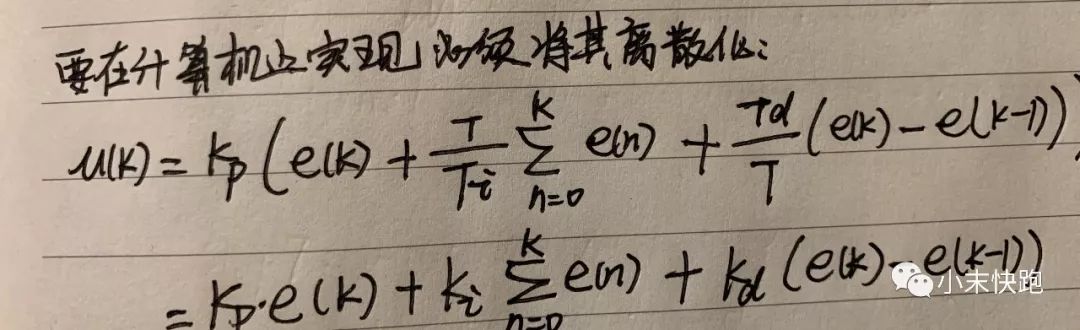 要在计算机上实现必须将其离散化:
u(k) = Kp (e(k) + T/Ti ∑_{n=0}^{k} e(n) + Td/T (e(k) - e(k-1)))
= Kp·e(k) + Ki ∑_{n=0}^{k} e(n) + Kd (e(k) - e(k-1))
小末快跑